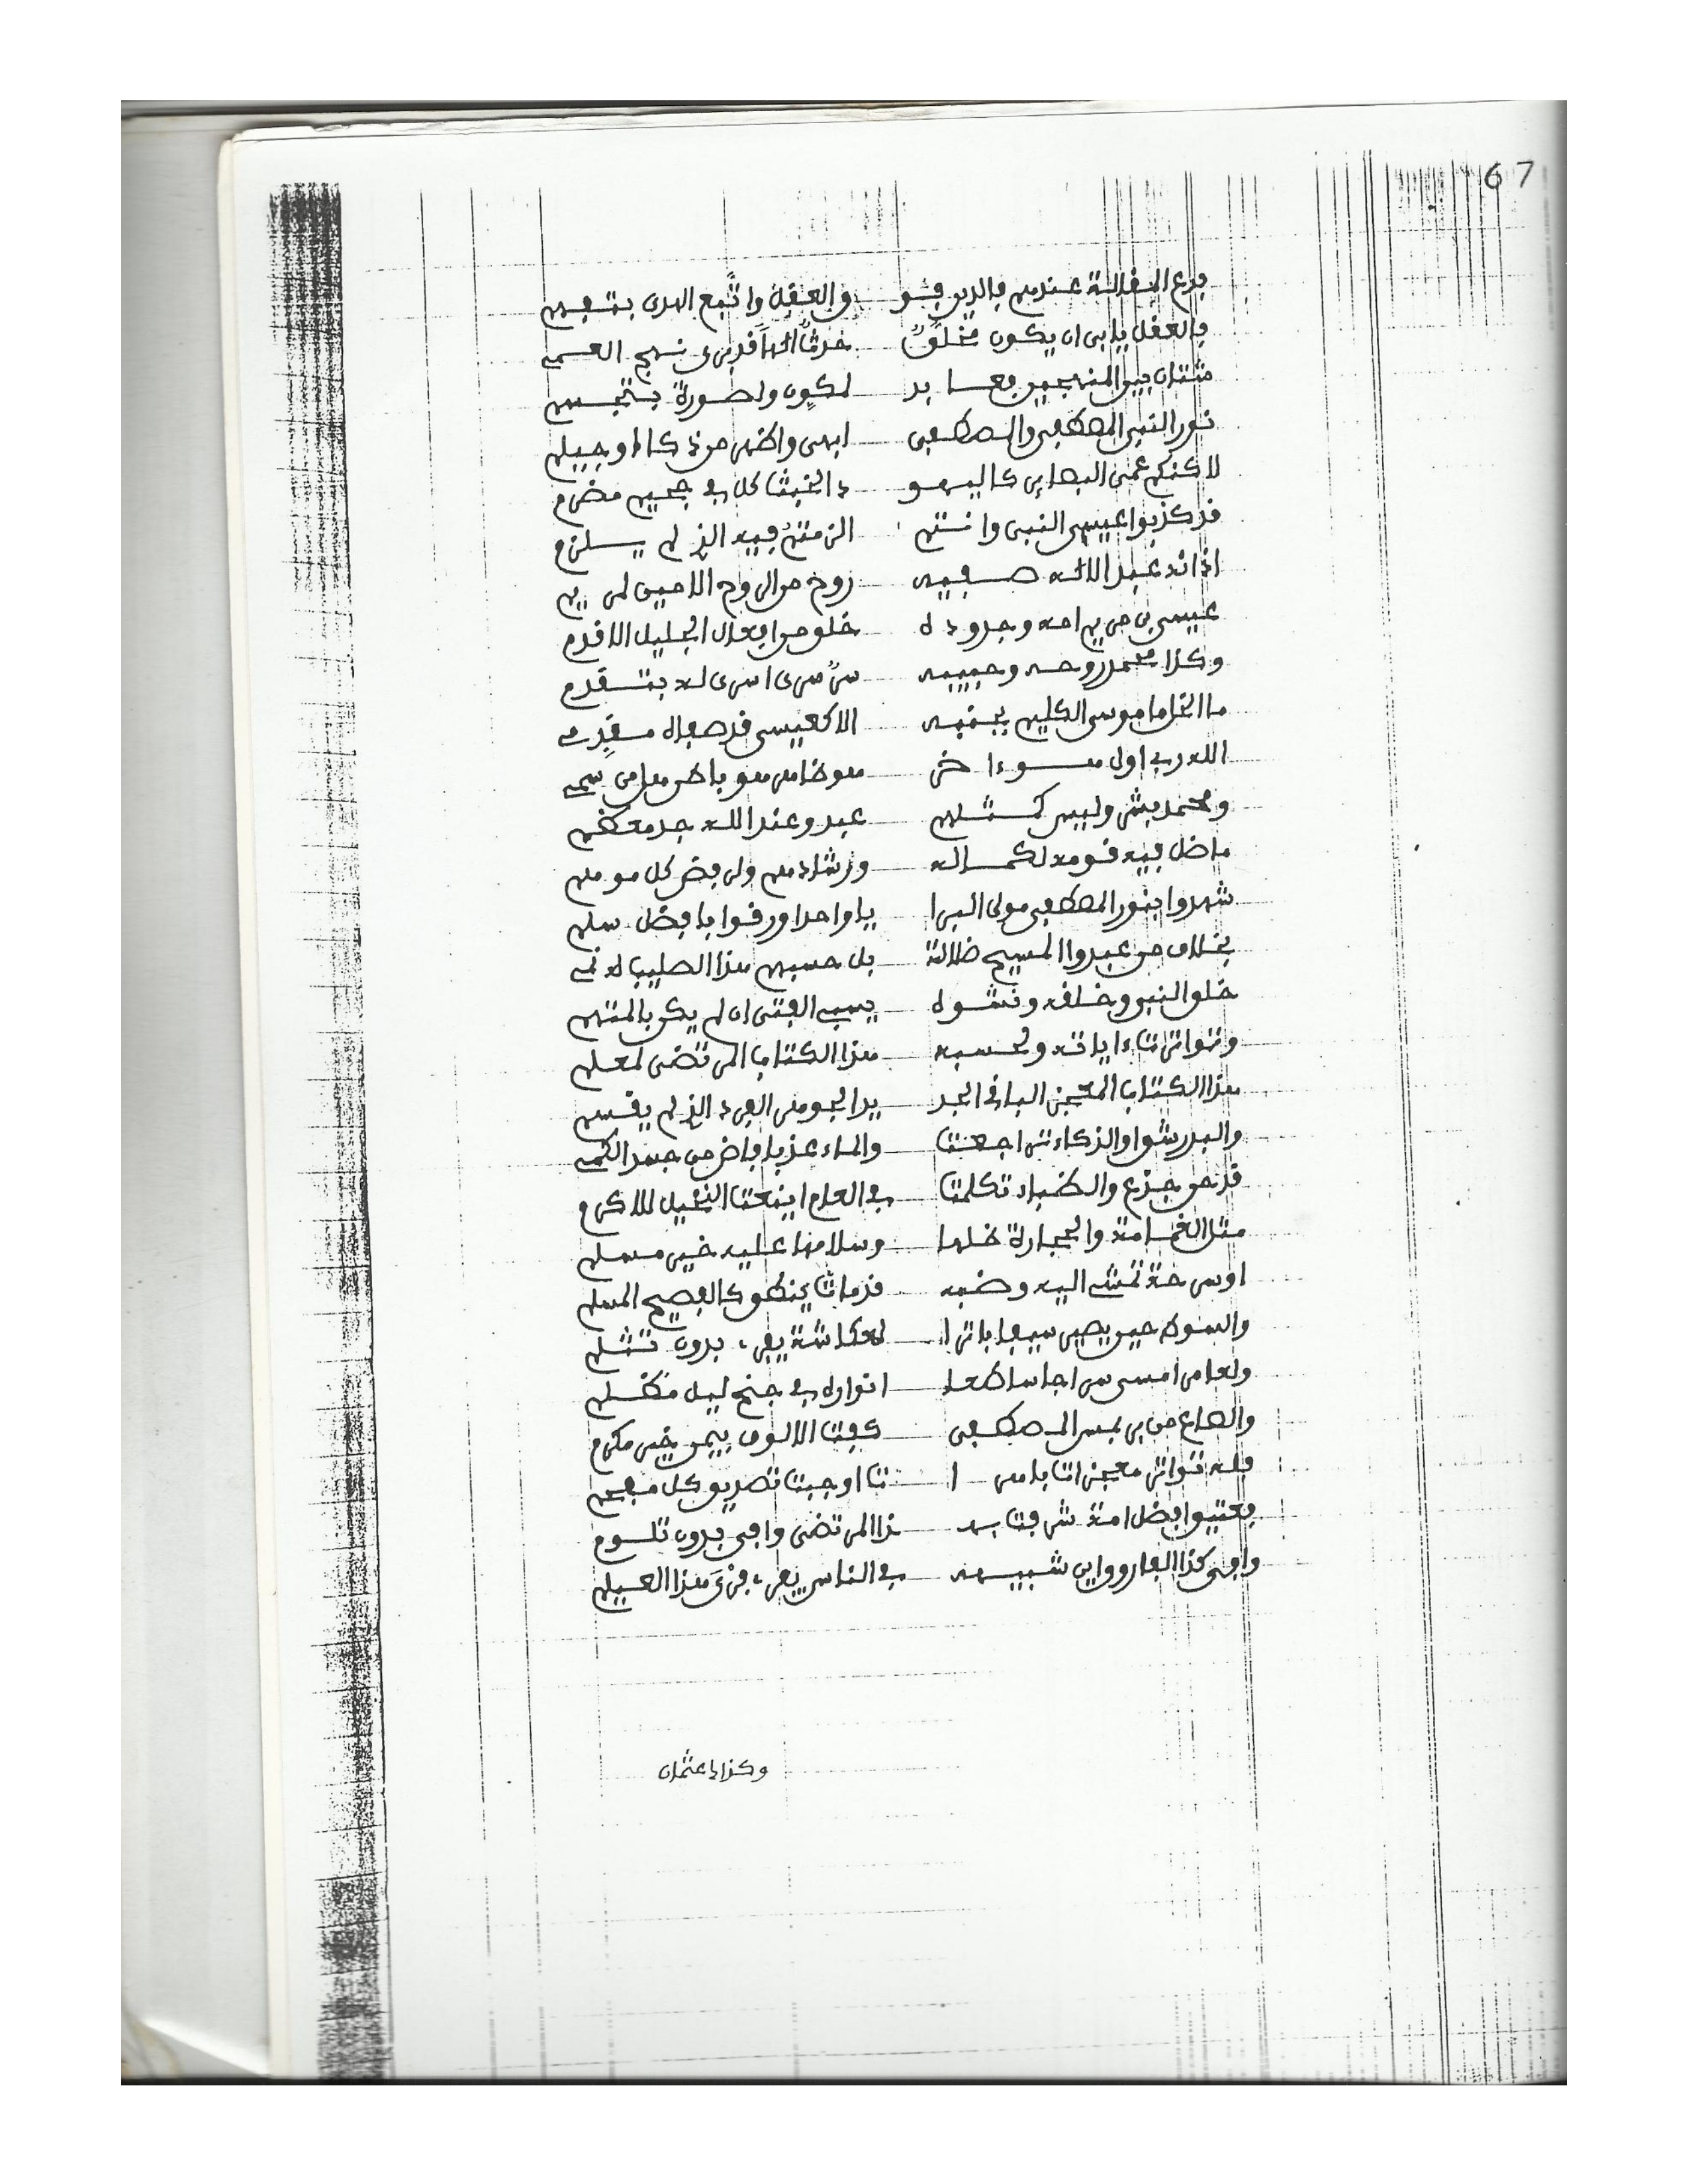 67
فدع الضلالة عندهم فالدين فيو والعقل واتبع الهدى بتفهم
فالعقل يابى ان يكون مخلق حدثا الها قد نرى نهج العم
شتان بين المنهجين فعابد لكون ولصورة بتجسم
نور النبي المصطفى والمصطفى ابهى واظهر من ذكاء او جيلم
لاكنكم عمى البصاير كاليهو د الخبثا كل في جحيم مضرم
قد كذبوا عيسى النبي وانتم الزمتم فيه الذي لم يلزم
اذ انه عبد الاله صفيه روح من الروح الامين لمريم
عيسى بن مريم امه وجدوده خلق من افعال الجليل الاقدم
وكذا محمد روحه وحبيبه سر سرى اسرى له بتقدم
ما الخل ما موسى الكليم بجنبه الا كعيسى قد صفاه مقدم
الله ربي اول هو ءاخر هو ظاهر هو باطن
ومحمد بشر وليس كمثلهم عبد وعند الله جد معظم
ما ضل فيه قومه لكماله ورشادهم ولرفض كل موهم
شهدوا بنور المصطفى مولى البرا يا واحدا ورقوا بافضل سلم
بخلاف من عبدوا المسيح ضلالة بل حسبهم هذا الصليب
خلق النبي وخلقه ونشوه يسبي الفتى ان لم يكن بالمتهم
وتواترت ءاياته ولحسبه هذا الكتاب المرتضى لمعلم
هذا الكتاب المعجز الباقي الجد يد الجوهر الفرد الذي لم يقسم
والبدر شق والذكاء تراجعت والماء عذبا فاض من جسد الكم
قد حن جذع والظباء تكلمت في العام اينعت النخيل للاكرم
مثل الغمامة والحجارة ظلها وسلامها عليه خير مسلم
اوسرحة تمشي اليه وضبه قد مات ينطق كالفصيح المسلم
والسوط حين يصير سيفا باترا لعكاشة يفرى بدون تثلم
ولعامر امسى سراجا ساطعا انواره في جنح ليل مظلم
والصاع من بر بمس المصطفى كفت الالوف بيمن خير مكرم
فله تواتر معجزات باهرا تا اوجبت تصديق كل مفحم
فعتيق افضل امة شرفت به ذا المرتضى وافى بدون تلوم
وافى كذا الفاروق اين شبيهه في الناس يفرى فرى هذا العيلم
وكذاك عثمان